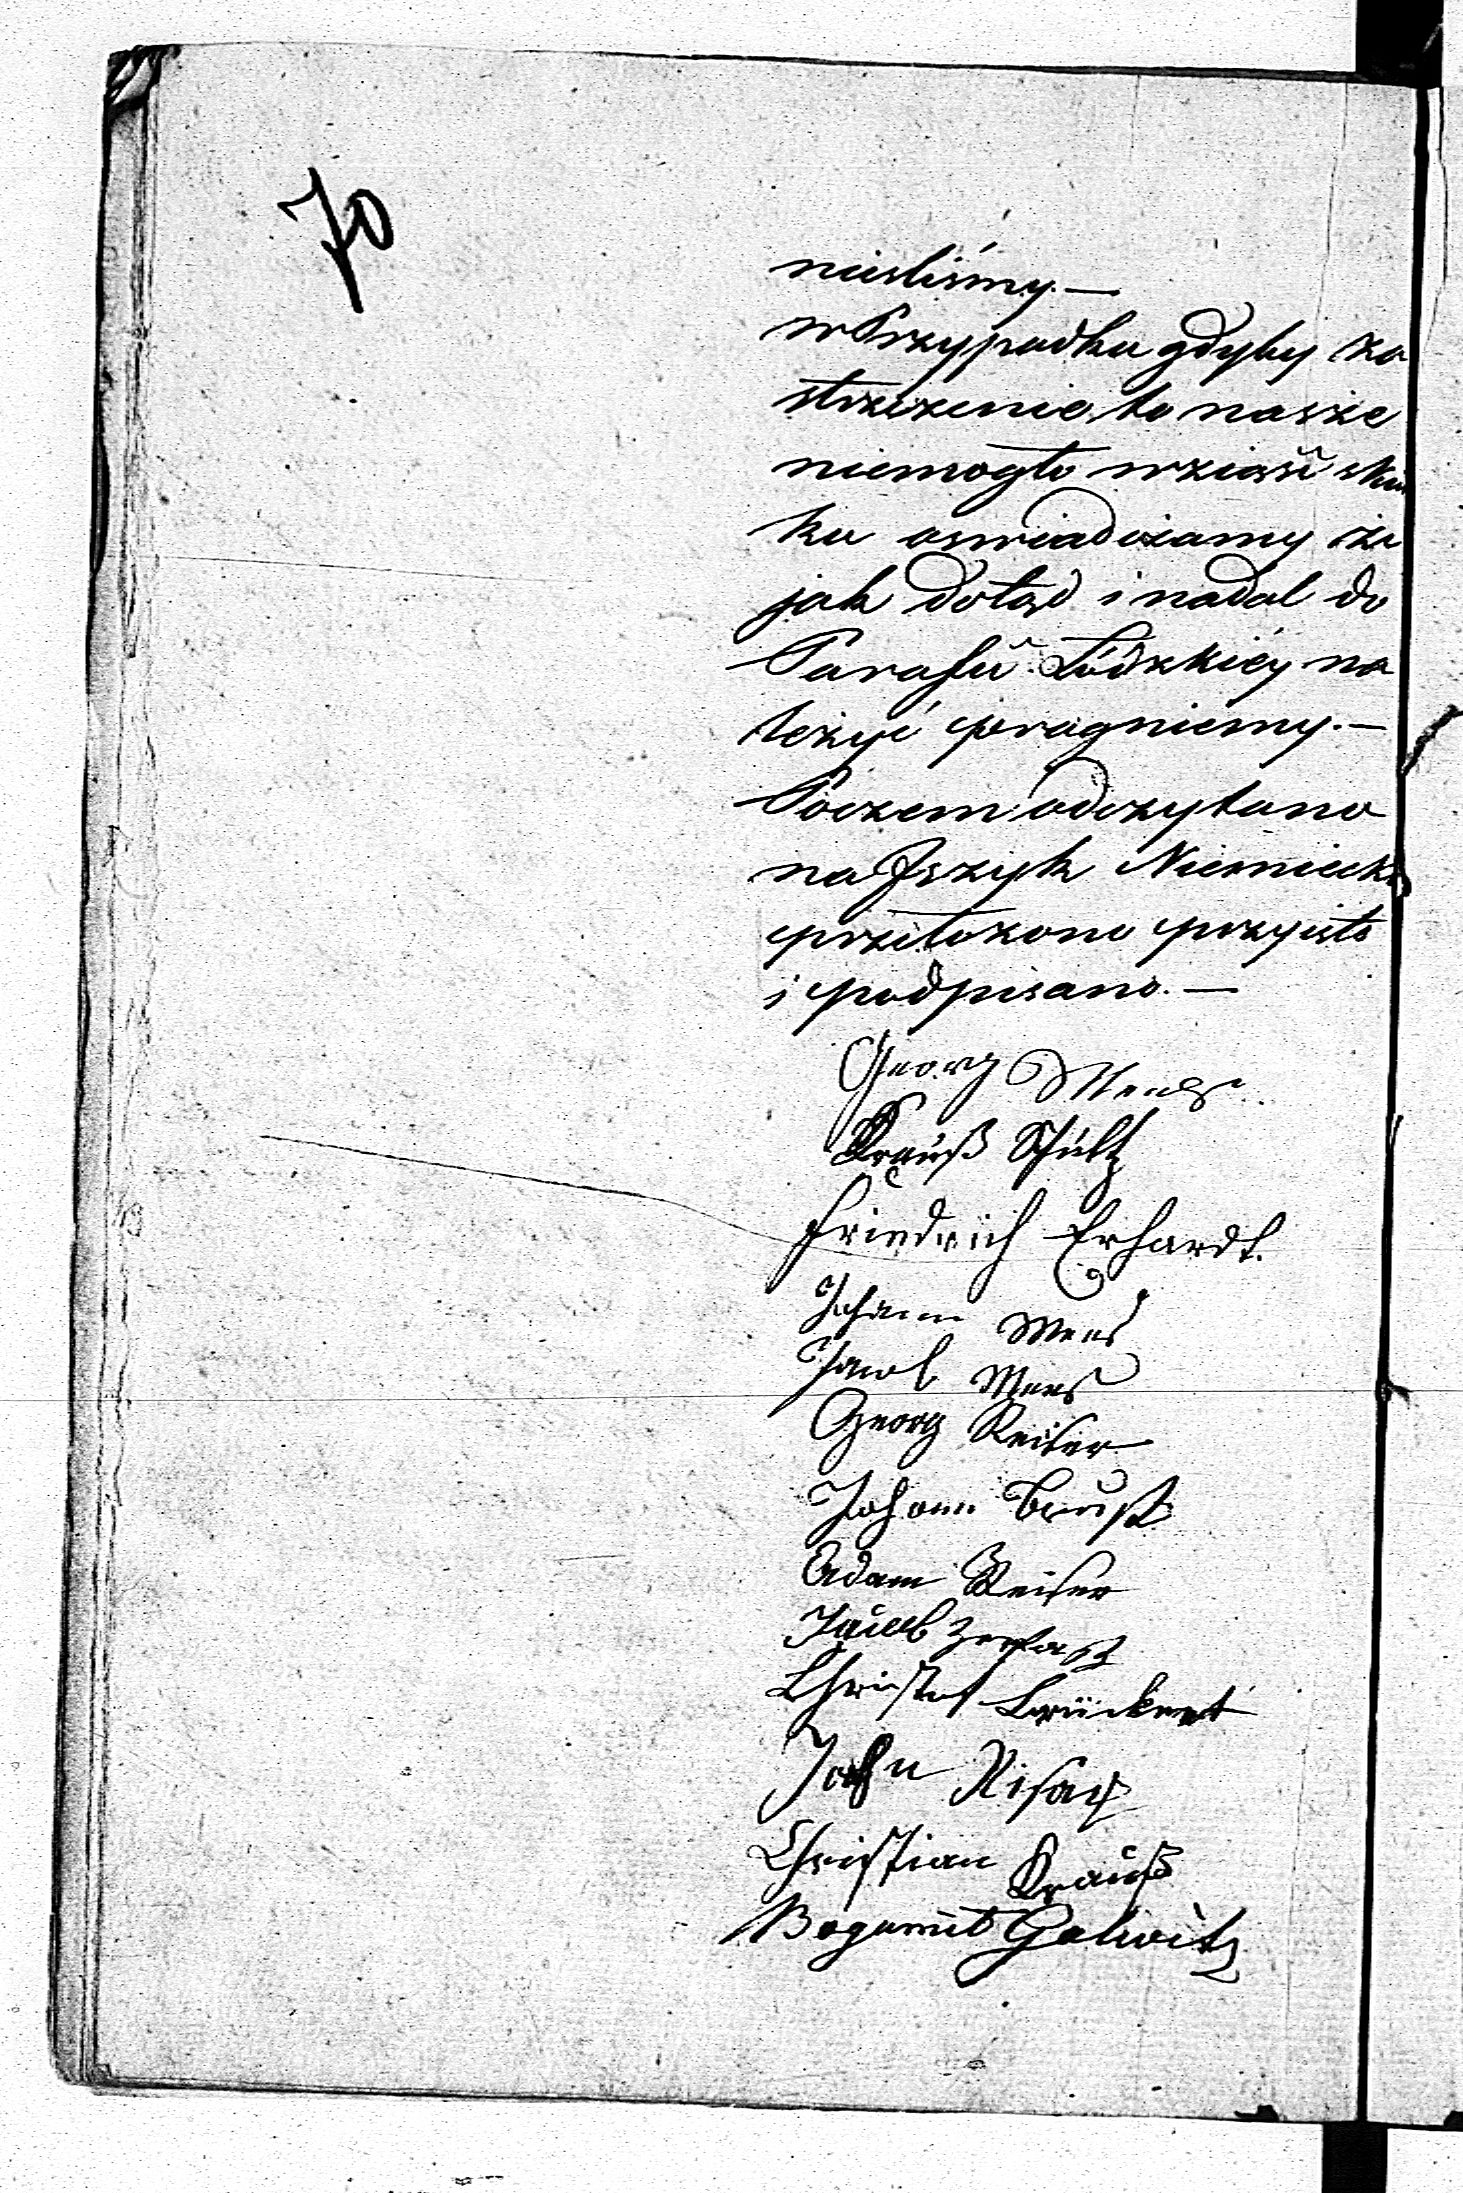 70
nieśliśmy. —
w Przypadku gdyby za
strzeżenie to nasze
niemogło wziąść skut
ku oświadczamy że
jak dotąd i nadal do
Parafii Łódzkiéy na
leżyć pragniemy. —
Poczem odczytano
na Język Niemiecki
przełożono przyięto
i podpisano. —
Georg Mees
Krauß Schultz
Friedrich Erhardt.
Johann Mees
Jacob Mees
Georg Reiser
Johann Brust
Adam Reiser
Jacob
Christof Brückert
John
Christian Krauß
Bogumił Galwitz